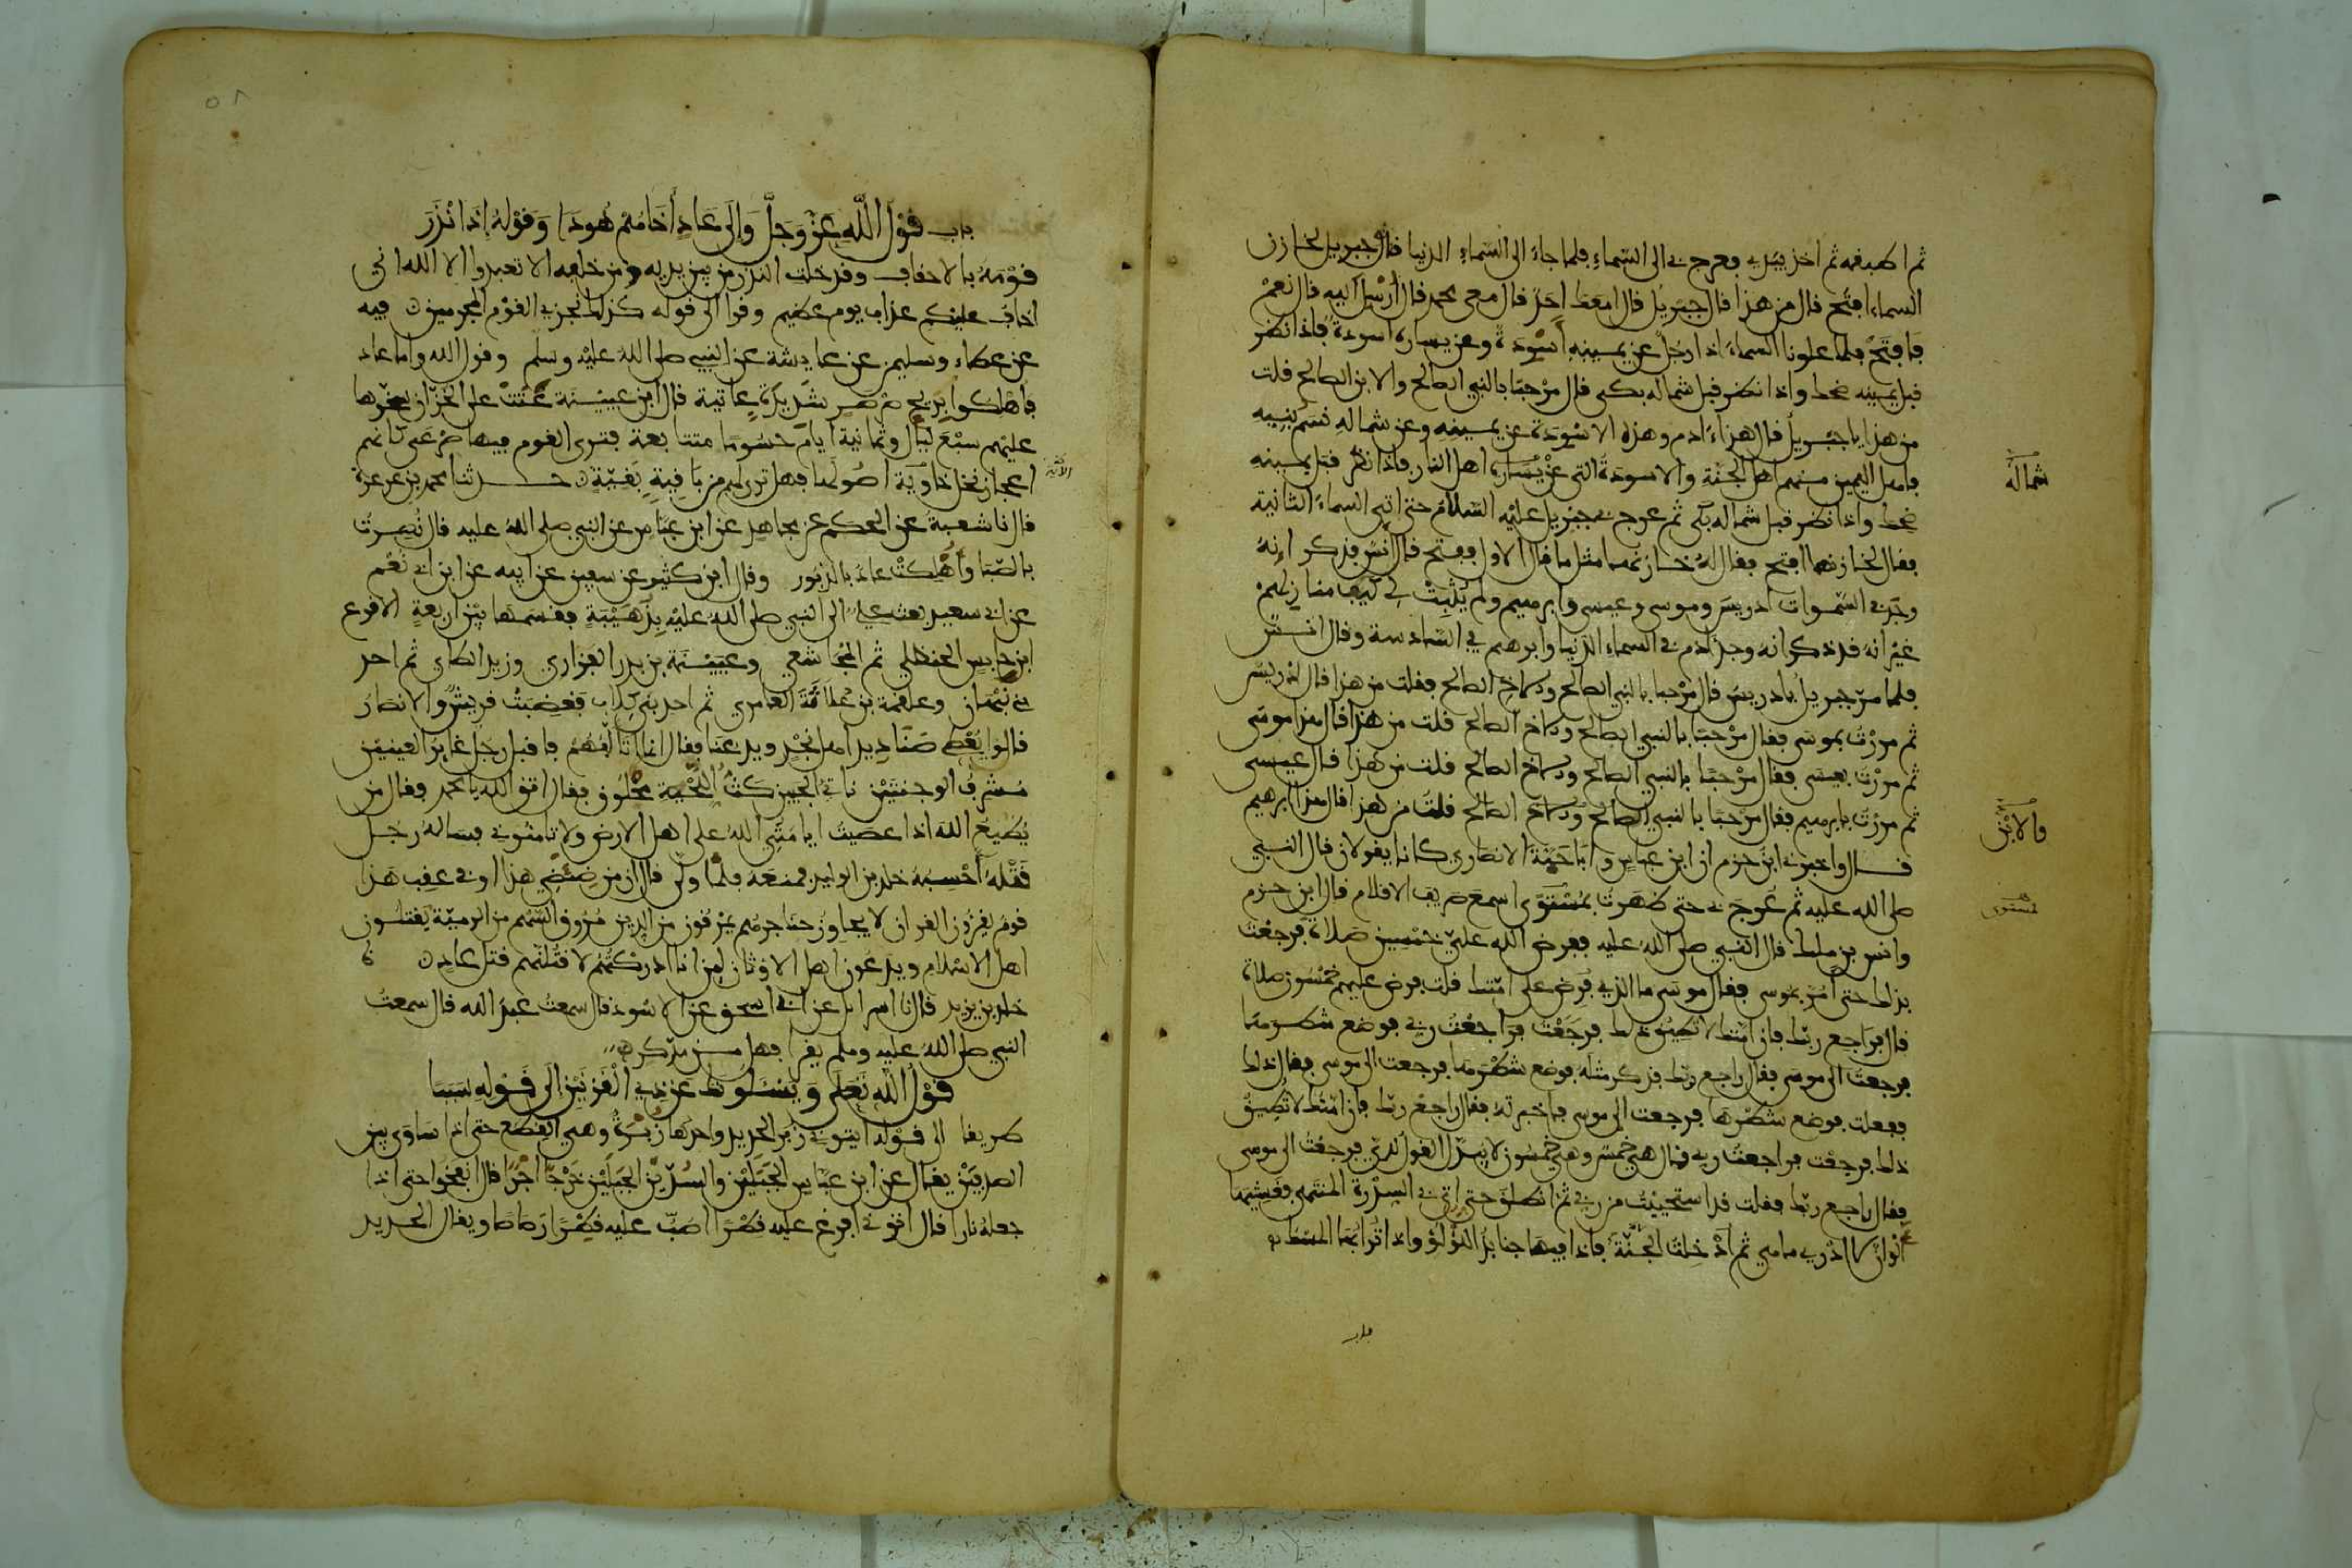 ثم اطبقه ثم اخذ بيدي فعرج بي الى السماء فلما جاء الى السماء الدنيا قال جبريل لخازن
السماء افتح قال من هذا قال جبريل قال امعك احد قال معي محمد قال أرسل اليه قال نعم
فافتح فلما علونا السماء اذا رجل عن يمينه أسودة وعن يساره اسودة فاذا نظر
قبل يمينه ضحك واذا نظر قبل شماله بكى قال مرحبا بالنبي الصالح والابن الصالح قلت
من هذا يا جبريل قال هذا ءادم وهذه الاسودة عن يمينه وعن شماله نسم بنيه
فاهل اليمين منهم اهل الجنة والاسودة التي عن يساره اهل النار فاذا نظر قبل يمينه
شماله
ضحك واذا نظر قبل شماله بكى ثم عرج بي جبريل عليه السلام حتى اتى السماء الثانية
فقال لخازنها افتح فقال له خازنها مثل ما قال الاول ففتح قال انس فذكر انه
وجد في السموات ادريس وموسى وعيسى وابرهيم ولم يثبت لي كيف منازلهم
غير انه قد ذكر انه وجد ادم في السماء الدنيا وابرهيم في السادسة وقال انس
فلما مر جبريل بادريس قال مرحبا بالنبي الصالح والاخ الصالح فقلت من هذا قال ادريس
ثم مررت بموسى فقال مرحبا بالنبي الصالح والاخ الصالح قلت من هذا قال هذا موسى
ثم مررت بعيسى فقال مرحبا بالنبي الصالح والاخ الصالح قلت من هذا قال عيسى
ثم مررت بابرهيم فقال مرحبا بالنبي الصالح والاخ الصالح قلت من هذا قال هذا ابرهيم
والابن
قال واخبرني ابن حزم ان ابن عباس وابا حية الانصاري كانا يقولان قال النبي
صلى الله عليه ثم عرج بي حتى ظهرت بمستوى اسمع صريف الاقلام قال ابن حزم
لمستوى
وانس بن ملك قال النبي صلى الله عليه ففرض الله علي خمسين صلاة فرجعت
بذلك حتى أمر بموسى فقال موسى ما الذي فرض على امتك قلت فرض عليهم خمسون صلاة
قال فراجع ربك فان امتك لا تطيق ذلك فرجعت فراجعت ربي فوضع شطرها
فرجعت الى موسى فقال راجع ربك فذكر مثله فوضع شطرها فرجعت الى موسى فقال ذلك
ففعلت فوضع شطرها فرجعت الى موسى فاخبرته فقال راجع ربك فان امتك لا تطيق
ذلك فرجعت فراجعت ربي فقال هي خمس وهي خمسون لا يبدل القول لدي فرجعت الى موسى
فقال راجع ربك فقلت قد استحييت من ربي ثم انطلق حتى اتى بي السدرة المنتهى فغشيها
ألوان لا ادري ما هي ثم أدخلت الجنة فاذا فيها جنابذ اللؤلؤ واذا ترابها المسك
باب
باب قول الله عز وجل وإلى عاد أخاهم هودا وقوله إذ انذر
قومه بالاحقاف وقد خلت النذر من بين يديه ومن خلفه الا تعبدوا الا الله اني
اخاف عليكم عذاب يوم عظيم وقرا الى قوله كذلك نجزي القوم المجرمين فيه
عن عطاء وسليمن عن عايشة عن النبي صلى الله عليه وسلم وقول الله واما عاد
فاهلكوا بريح صرصر شديدة عاتية قال ابن عيينة عتت على الخزان سخرها
عليهم سبع ليال وثمانية أيام حسوما متتابعة فترى القوم فيها صرعى كانهم
اعجاز نخل خاوية اصولها فهل ترى لهم من باقية بقية حدثنا محمد بن عرعرة
قال نا شعبة عن الحكم عن مجاهد عن ابن عباس عن النبي صلى الله عليه قال نصرت
بالصبا وأهلكت عاد بالدبور وقال ابن كثير عن سفين عن ابيه عن ابن ابي نعم
عن ابي سعيد بعث علي الى النبي صلى الله عليه بذهيبة فقسمها بين اربعة الاقرع
ابن حابس الحنظلي ثم المجاشعي وعيينة بن بدر الفزاري وزيد الطاي ثم احد
بني نبهان وعلقمة بن علاثة العامري ثم احد بني كلاب فغضبت قريش والانصار
قالوا يعطي صناديد اهل نجد ويدعنا فقال انما اتالفهم فاقبل رجل غاير العينين
مشرف الوجنتين ناتي الجبين كث اللحية محلوق فقال اتق الله يا محمد فقال من
يطيع الله اذا عصيت ايامنني الله على اهل الارض ولا تامنوني فساله رجل
قتله أحسبه خلد بن الوليد فمنعه فلما ولى قال ان من ضئضئ هذا او في عقب هذا
قوم يقرءون القران لا يجاوز حناجرهم يمرقون من الدين مروق السهم من الرمية يقتلون
اهل الاسلام ويدعون اهل الاوثان لين انا ادركتهم لاقتلنهم قتل عاد
خلد بن يزيد قال نا اسرايل عن ابي اسحق عن الاسود قال سمعت عبد الله قال سمعت
النبي صلى الله عليه وسلم يقرا فهل من مدكر
قول الله تعلى ويسئلونك عن ذي القرنين الى قوله سببا
طريقا الى قوله ايتوني زبر الحديد واحدها زبرة وهي القطع حتى اذا ساوى بين
الصدفين يقال عن ابن عباس الجبلين والسدين الجبلين خرجا اجرا قال انفخوا حتى اذا
جعله نارا قال اتوني افرغ عليه قطرا اصب عليه قطرا رصاصا ويقال الحديد